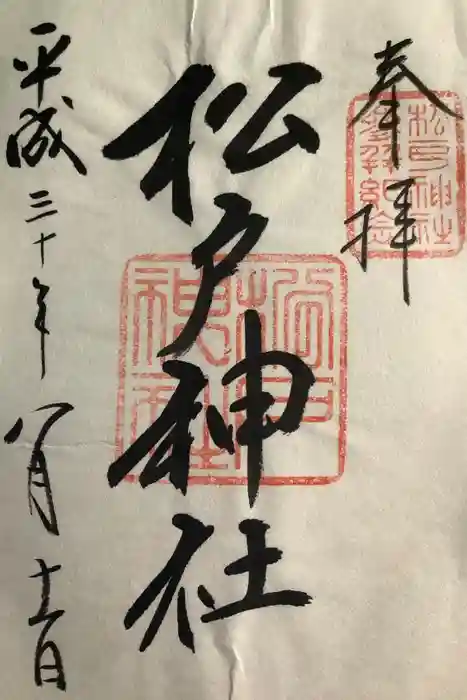 奉拝
松戸神社
平成三十年八月十一日
松戸神社
参拝記念
松戸神社